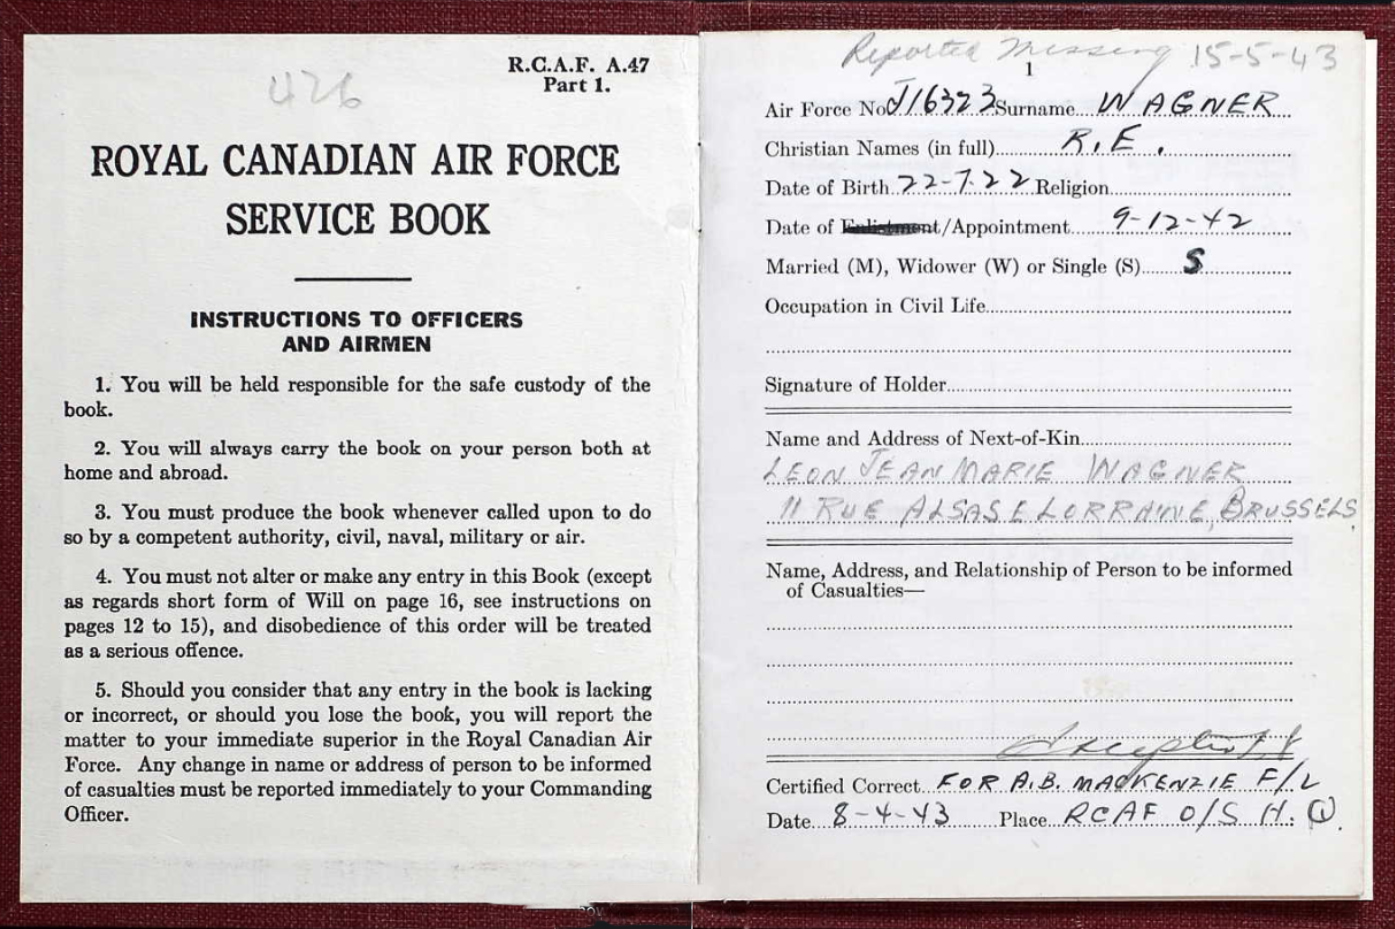 426
R.C.A.F. A.47
Part 1.
ROYAL CANADIAN AIR FORCE
SERVICE BOOK
INSTRUCTIONS TO OFFICERS
AND AIRMEN
1. You will be held responsible for the safe custody of the
book.
2. You will always carry the book on your person both at
home and abroad.
3. You must produce the book whenever called upon to do
so by a competent authority, civil, naval, military or air.
4. You must not alter or make any entry in this Book (except
as regards short form of Will on page 16, see instructions on
pages 12 to 15), and disobedience of this order will be treated
as a serious offence.
5. Should you consider that any entry in the book is lacking
or incorrect, or should you lose the book, you will report the
matter to your immediate superior in the Royal Canadian Air
Force. Any change in name or address of person to be informed
of casualties must be reported immediately to your Commanding
Officer.
Reported Missing 15-5-43
1
Air Force No J16323 Surname WAGNER
Christian Names (in full) R.E.
Date of Birth 22-7-22 Religion
Date of Enlistment/Appointment 9-12-42
Married (M), Widower (W) or Single (S) S
Occupation in Civil Life
Signature of Holder
Name and Address of Next-of-Kin
LEON JEAN MARIE WAGNER
11 RUE ALSASE LORRAINE, BRUSSELS
Name, Address, and Relationship of Person to be informed
of Casualties—
Certified Correct FOR A.B. MACKENZIE F/L
Date 8-4-43 Place RCAF O/S H.Q.